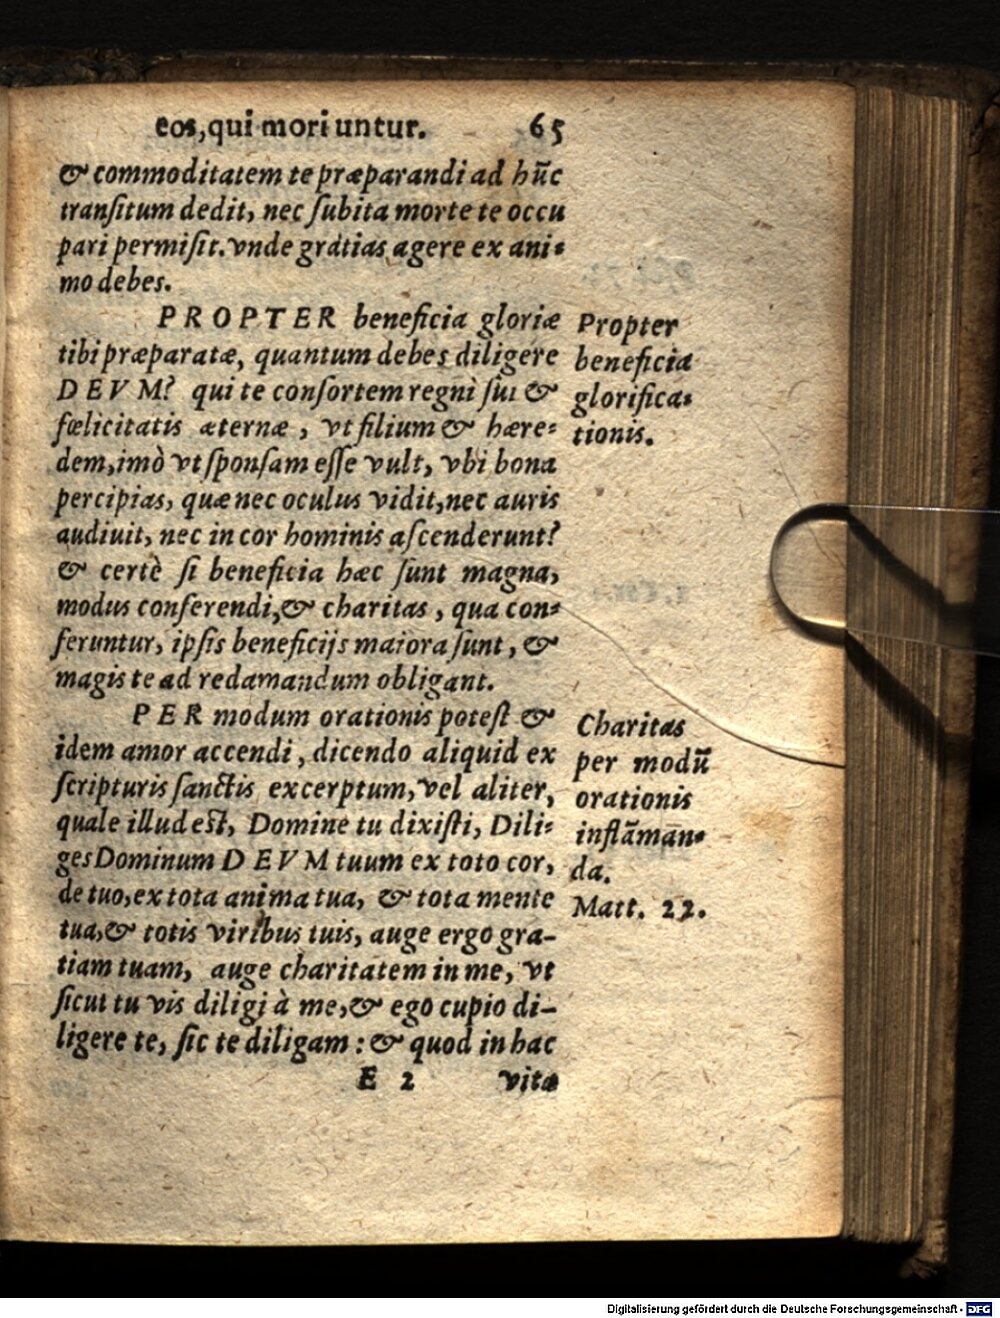 eos, qui moriuntur. 65
& commoditatem te præparandi ad hũc
transitum dedit, nec subita morte te occu
pari permisit. vnde gratias agere ex ani-
mo debes.
PROPTER beneficia gloriæ
tibi præparatæ, quantum debes diligere
DEVM? qui te consortem regni sui &
fœlicitatis æternæ, vt filium & hære-
dem, imò vt sponsam esse vult, vbi bona
percipias, quæ nec oculus vidit, nec auris
audiuit, nec in cor hominis ascenderunt?
& certè si beneficia hæc sunt magna,
modus conferendi, & charitas, qua con-
feruntur, ipsis beneficijs maiora sunt, &
magis te ad redamandum obligant.
Propter
beneficia
glorifica-
tionis.
PER modum orationis potest &
idem amor accendi, dicendo aliquid ex
scripturis sanctis excerptum, vel aliter,
quale illud est, Domine tu dixisti, Dili-
ges Dominum DEVM tuum ex toto cor,
de tuo, ex tota anima tua, & tota mente
tua, & totis viribus tuis, auge ergo gra-
tiam tuam, auge charitatem in me, vt
sicut tu vis diligi à me, & ego cupio di-
ligere te, sic te diligam: & quod in hac
Charitas
per modũ
orationis
inflãman-
da.
Matt. 22.
E 2 vita
Digitalisierung gefördert durch die Deutsche Forschungsgemeinschaft - DFG